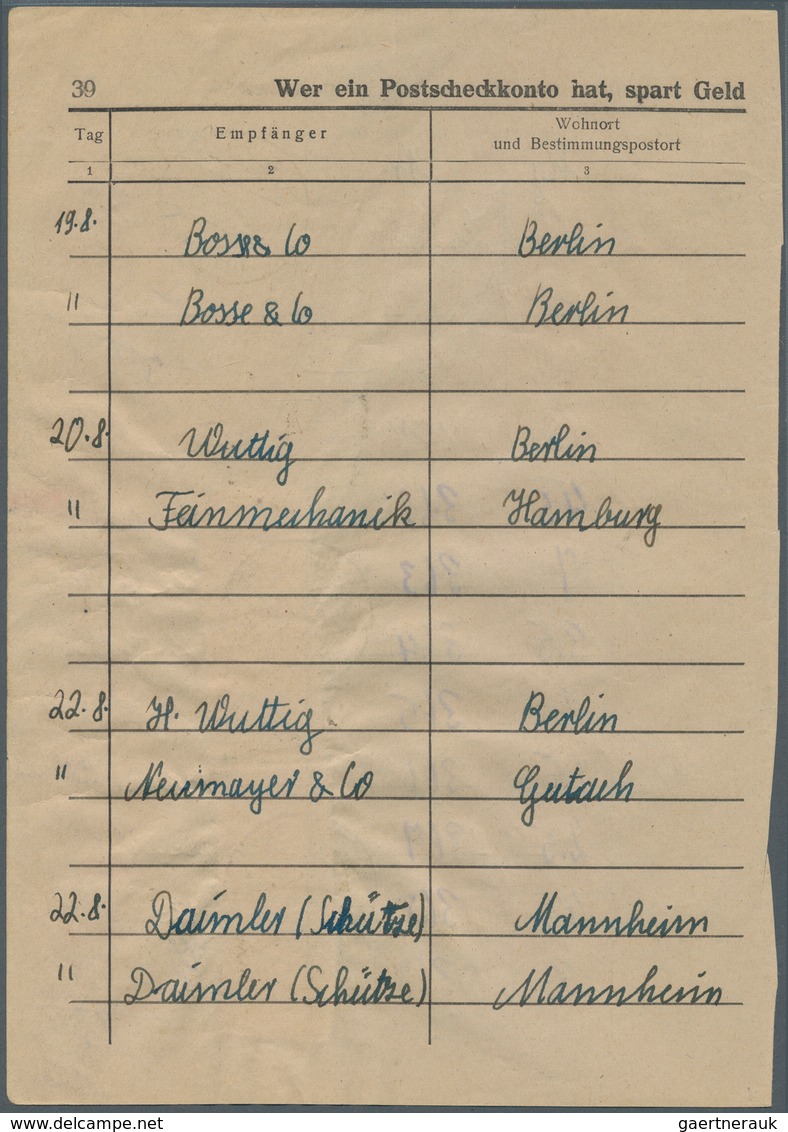 39 Wer ein Postscheckkonto hat, spart Geld
Tag Empfänger Wohnort und Bestimmungspostort
1 2 3
19.8. Bosse & Co Berlin
" Bosse & Co Berlin
20.8. Wuttig Berlin
" Feinmechanik Hamburg
22.8. H. Wuttig Berlin
" Neumayer & Co Gutach
22.8. Daimler (Schütze) Mannheim
" Daimler (Schütze) Mannheim
gaertnerauk